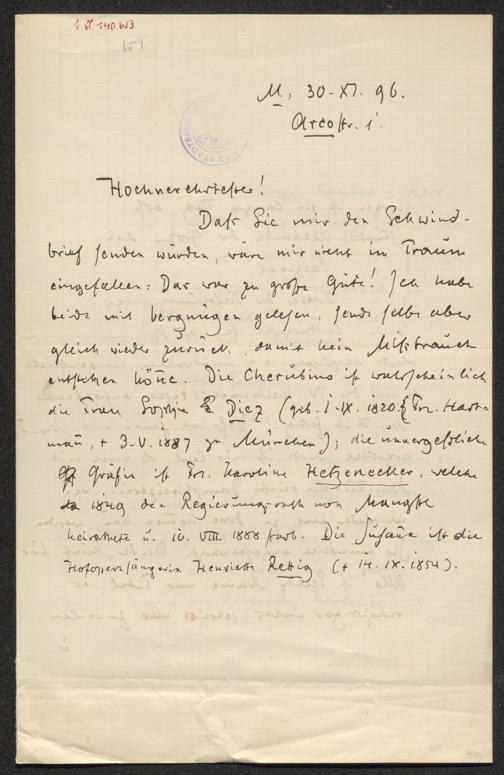 M, 30-XI. 96.
Arcostr. 1.
Hochverehrtester!
Daß Sie mir den Schwind-
brief senden würden, wäre mir nicht im Traum
eingefallen: Das war zu große Güte! Ich habe
beide mit Vergnügen gelesen, sende selbe aber
gleich wieder zurück, damit kein Mißbrauch
entstehen kön̄e. Die Cherubino ist wahrscheinlich
die Frau Sophie Diez (geb. 1-IX. 1820. Frl. Hart-
man̄, + 3-V. 1887 zu München); die unvergeßliche
Gräfin ist Frl. Karoline Hetzenecker, welche
1849 den Regierungsrath von Mangstl
heirathete u. 10. VIII. 1888 starb. Die Susan̄a ist die
Hofopernsängerin Henriette Rettig (+ 14. IX. 1854).